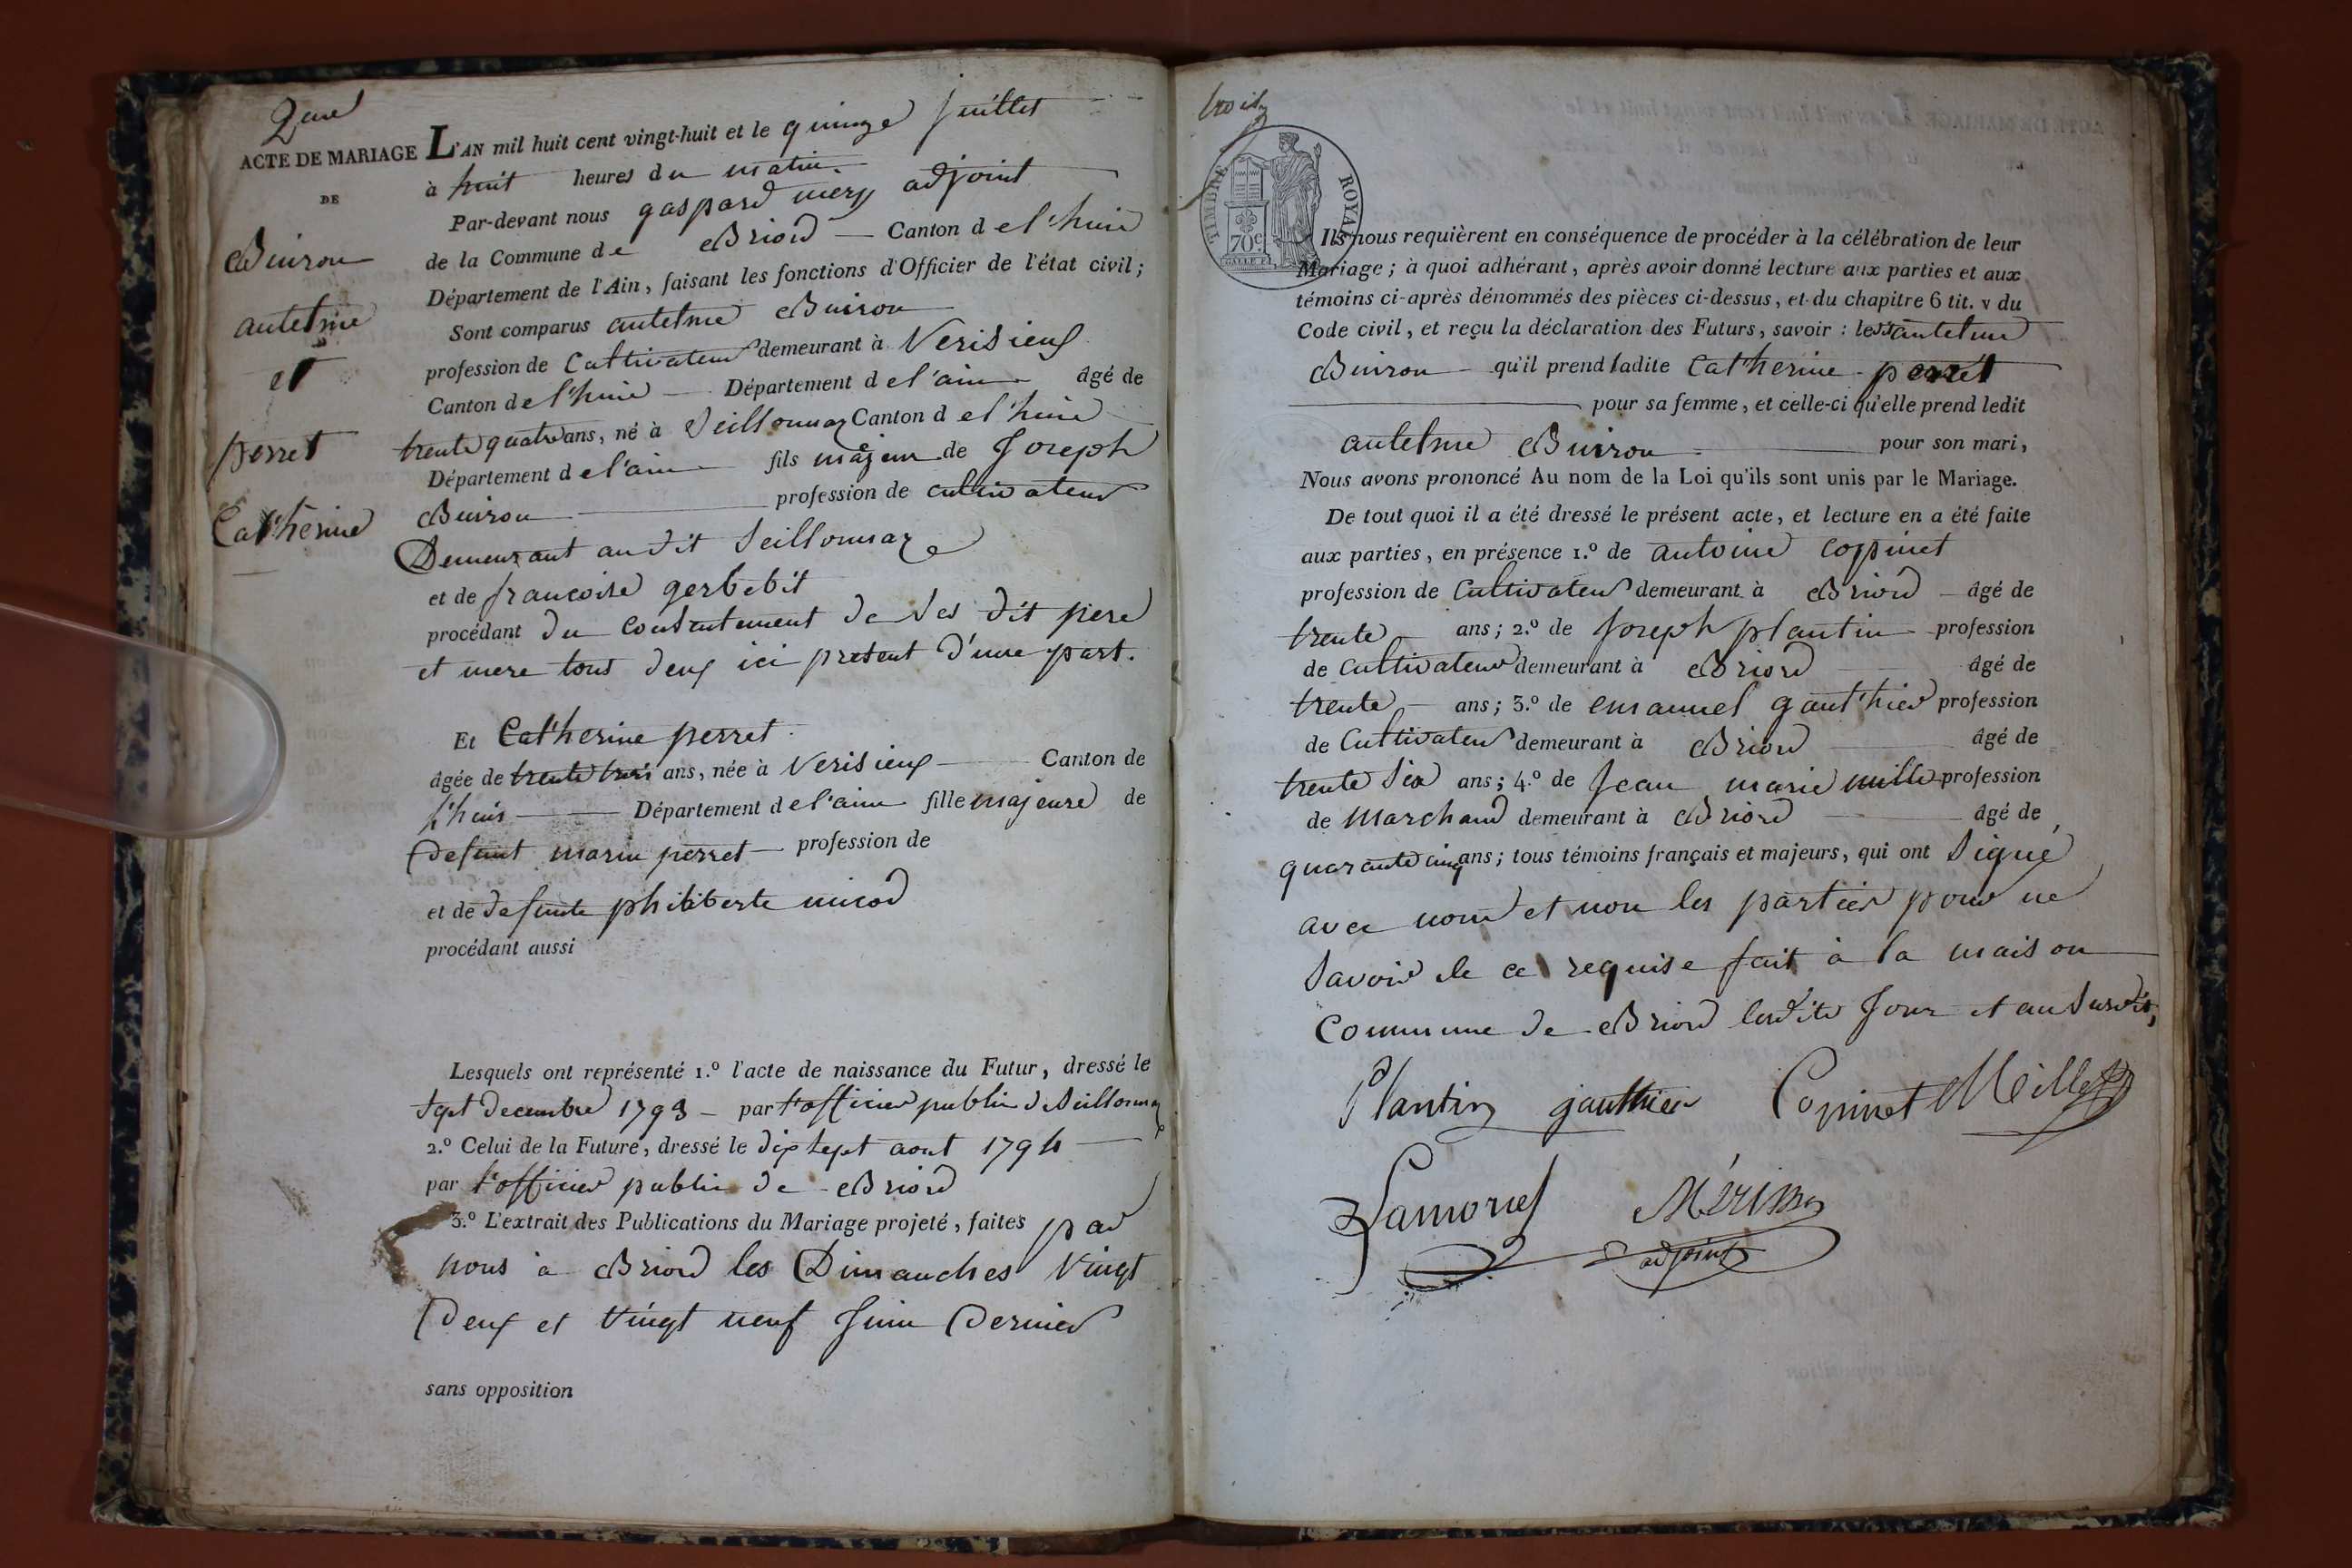 2eme
ACTE DE MARIAGE
DE
Buiron
antelme
et
perret
Catherine
L'AN mil huit cent vingt-huit et le quinze juillet
à huit heures du matin
Par-devant nous gaspard mery adjoint
de la Commune de Briord Canton de l'huis
Département de l'Ain, faisant les fonctions d'Officier de l'état civil;
Sont comparus antelme Buiron
profession de Cultivateur demeurant à Verisieux
Canton de l'huis Département de l'ain âgé de
trente quatre ans, né à Seillonnaz Canton de l'huis
Département de l'ain fils majeur de Joseph
Buiron profession de cultivateur
Demeurant au dit Seillonnaz
et de francoise gerbebit
procédant du consentement de ses dit pere
et mere tous deux ici present d'une part.
Et Catherine perret
âgée de trente trois ans, née à Verisieux Canton de
l'huis Département de l'ain fille majeure de
Defunt marin perret profession de
et de defunte philiberte micod
procédant aussi
Lesquels ont représenté 1.º l'acte de naissance du Futur, dressé le
sept decembre 1793 par l'officier public de Seillonnaz
2.º Celui de la Future, dressé le dix sept aout 1794
par l'officier public de Briord
3.º L'extrait des Publications du Mariage projeté, faites par
nous à Briord les Dimanches vingt
Deux et vingt neuf Juin Dernier
sans opposition
trois
TIMBRE ROYAL
70c
Ils nous requièrent en conséquence de procéder à la célébration de leur
Mariage; à quoi adhérant, après avoir donné lecture aux parties et aux
témoins ci-après dénommés des pièces ci-dessus, et du chapitre 6 tit. v du
Code civil, et reçu la déclaration des Futurs, savoir : antelme
Buiron qu'il prend ladite Catherine perret
pour sa femme, et celle-ci qu'elle prend ledit
antelme Buiron pour son mari,
Nous avons prononcé Au nom de la Loi qu'ils sont unis par le Mariage.
De tout quoi il a été dressé le présent acte, et lecture en a été faite
aux parties, en présence 1.º de antoine Copinet
profession de Cultivateur demeurant à Briord âgé de
trente ans; 2.º de Joseph plantin profession
de Cultivateur demeurant à Briord âgé de
trente ans; 3.º de emanuel gauthier profession
de Cultivateur demeurant à Briord âgé de
trente six ans; 4.º de Jean marie profession
de Marchand demeurant à Briord âgé de
quarante cinq ans; tous témoins français et majeurs, qui ont signé
avec nous et non les parties pour ne
savoir de ce requise fait à la maison
Commune de Briord lesdits Jour et an susdit,
Plantin gauthier Copinet Millet
adjoint